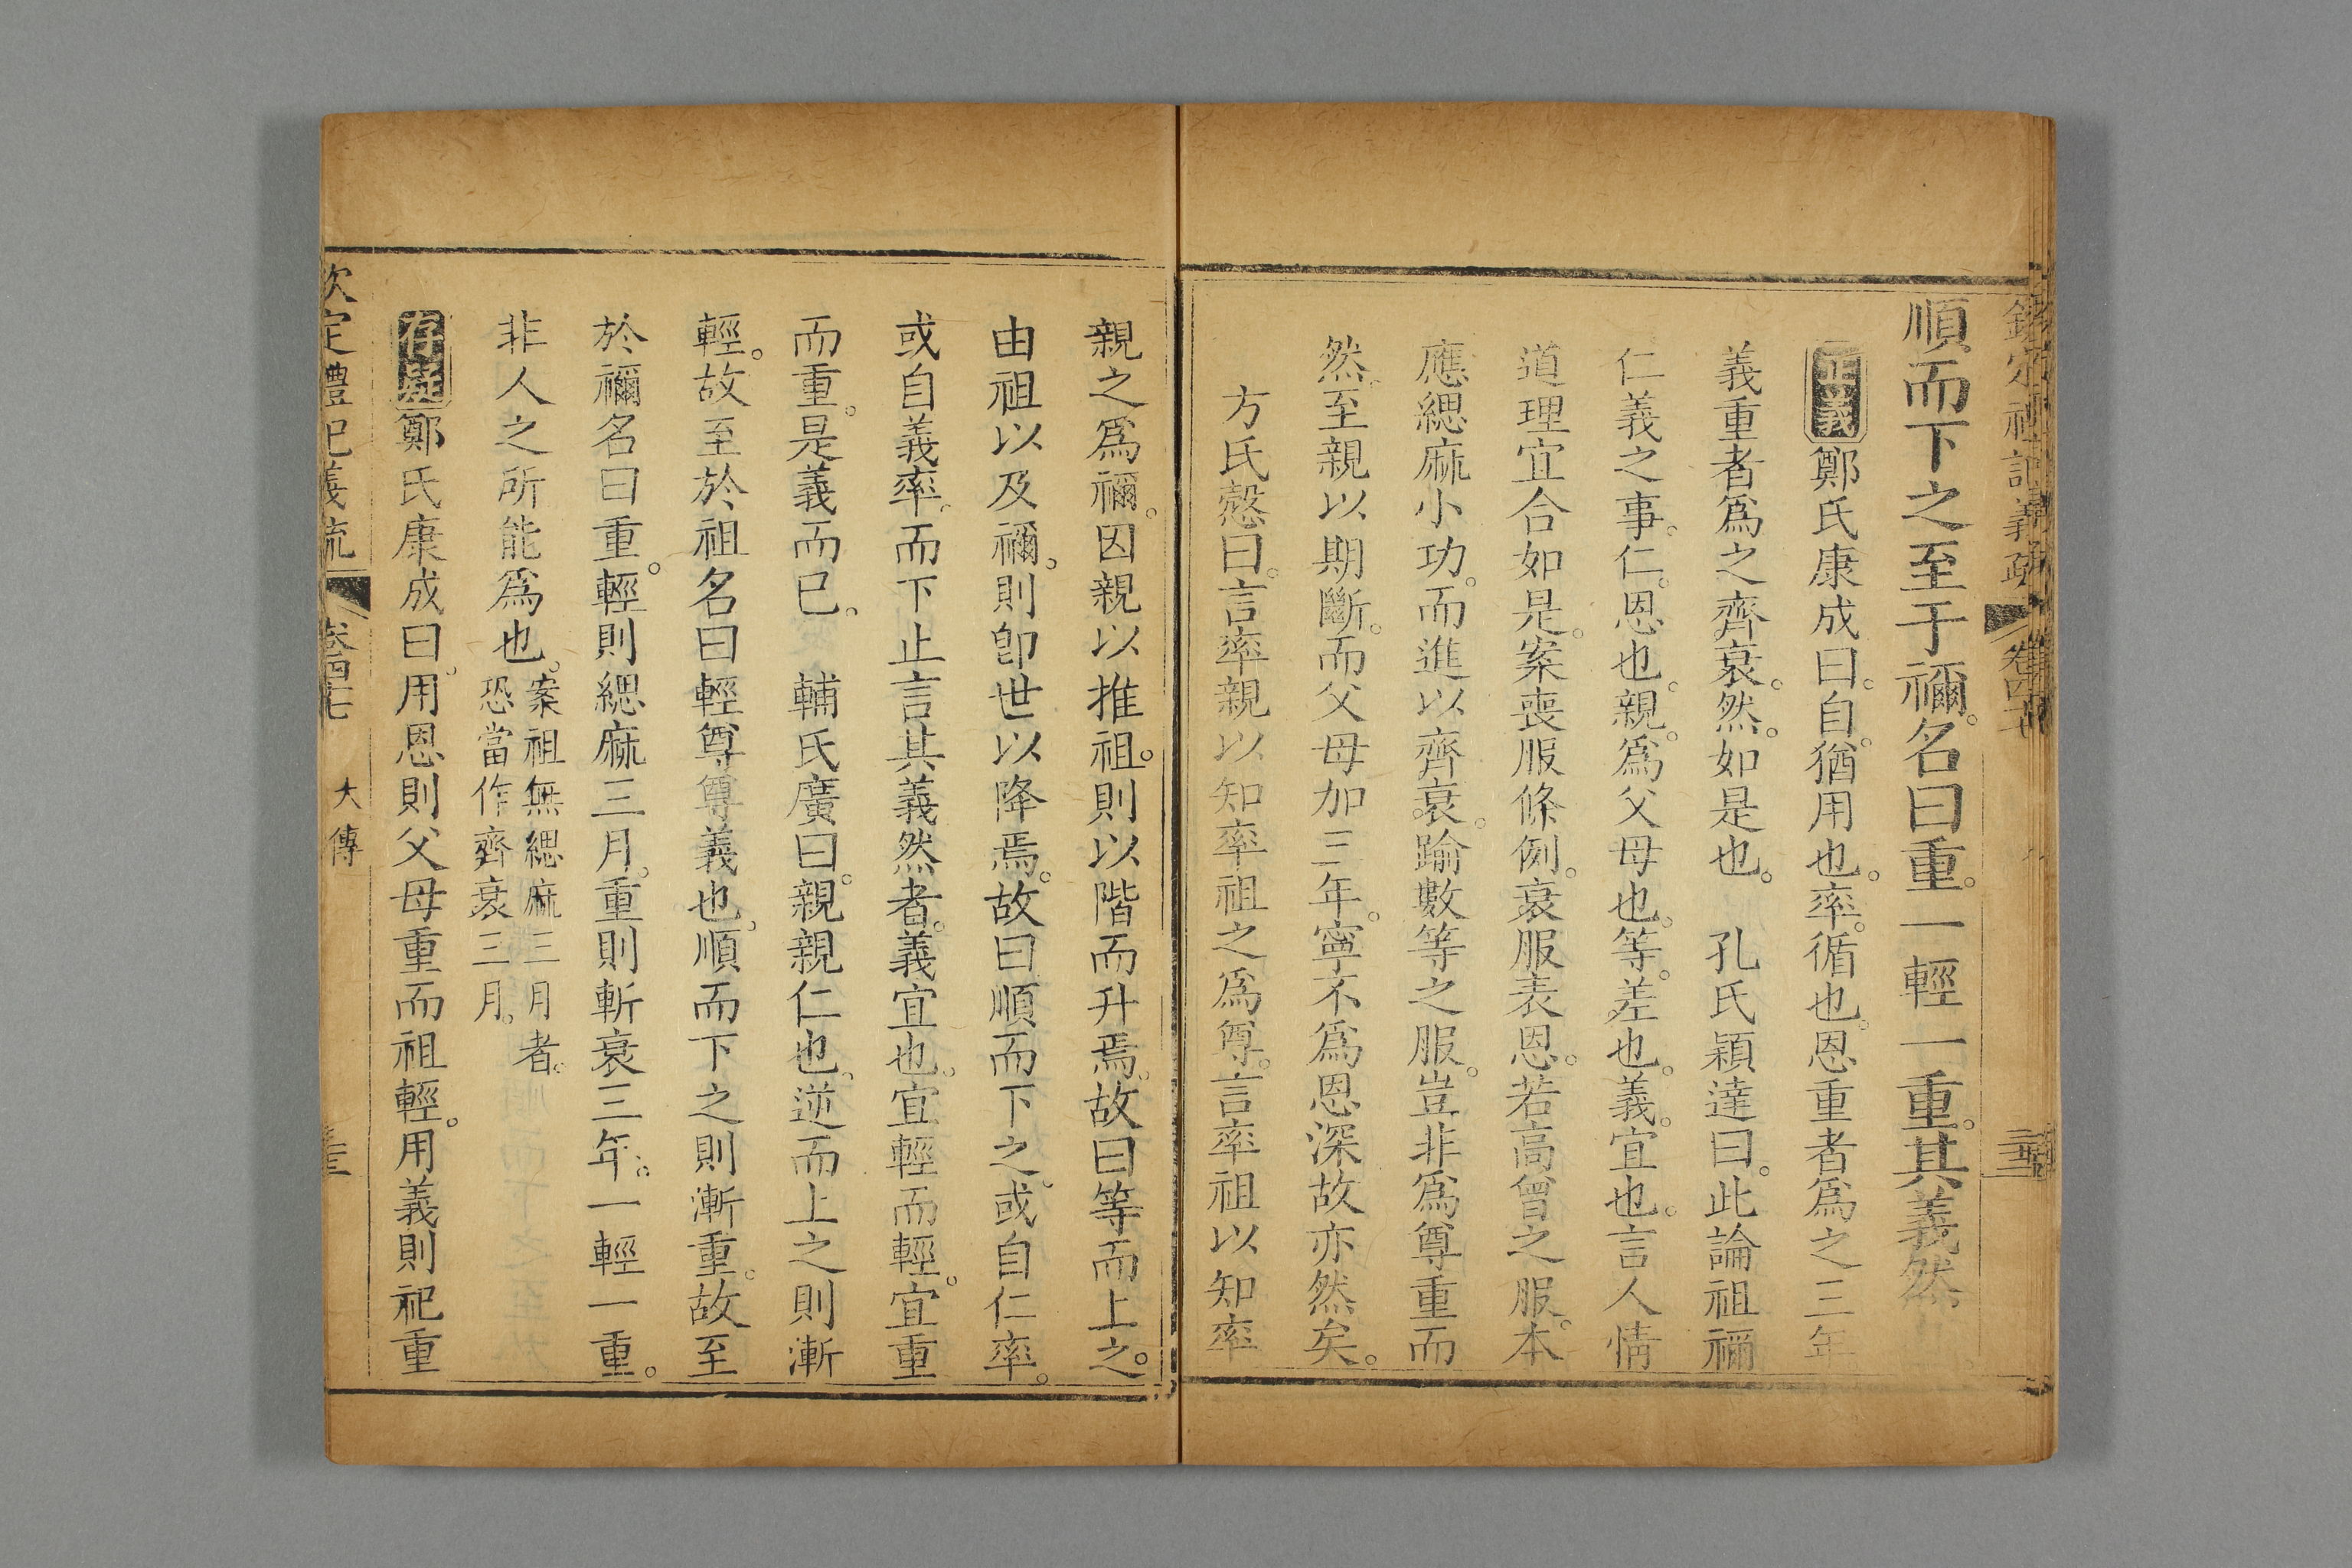 順而下之至于禰。名曰重。一輕一重。其義然
正義鄭氏康成曰。自。猶用也。率。循也。恩重者爲之三年
義重者爲之齊衰。然。如是也。 孔氏穎達曰。此論祖禰
仁義之事。仁。恩也。親。爲父母也。等。差也。義。宜也。言人情
道理宜合如是。案喪服條例。衰服表恩。若高曾之服。本
應緦麻小功。而進以齊衰。踰數等之服。豈非爲尊重而
然。至親以期斷。而父母加三年。寧不爲恩深。故亦然矣。
方氏慤曰。言率親以知率祖之爲尊。言率祖以知率
親之爲禰。因親以推祖。則以階而升焉。故曰等而上之。
由祖以及禰。則卽世以降焉。故曰順而下之。或自仁率。
或自義率。而下止言其義然者。義宜也。宜輕而輕。宜重
而重。是義而已。 輔氏廣曰。親親仁也。逆而上之則漸
輕。故至於祖名曰輕尊尊義也。順而下之則漸重。故至
於禰名曰重。輕則緦麻三月。重則斬衰三年。一輕一重。
非人之所能爲也。案祖無緦麻三月者。
恐當作齊衰三月。
存疑鄭氏康成曰。用恩則父母重而祖輕。用義則祀重
欽定禮記義疏 卷四七 大傳